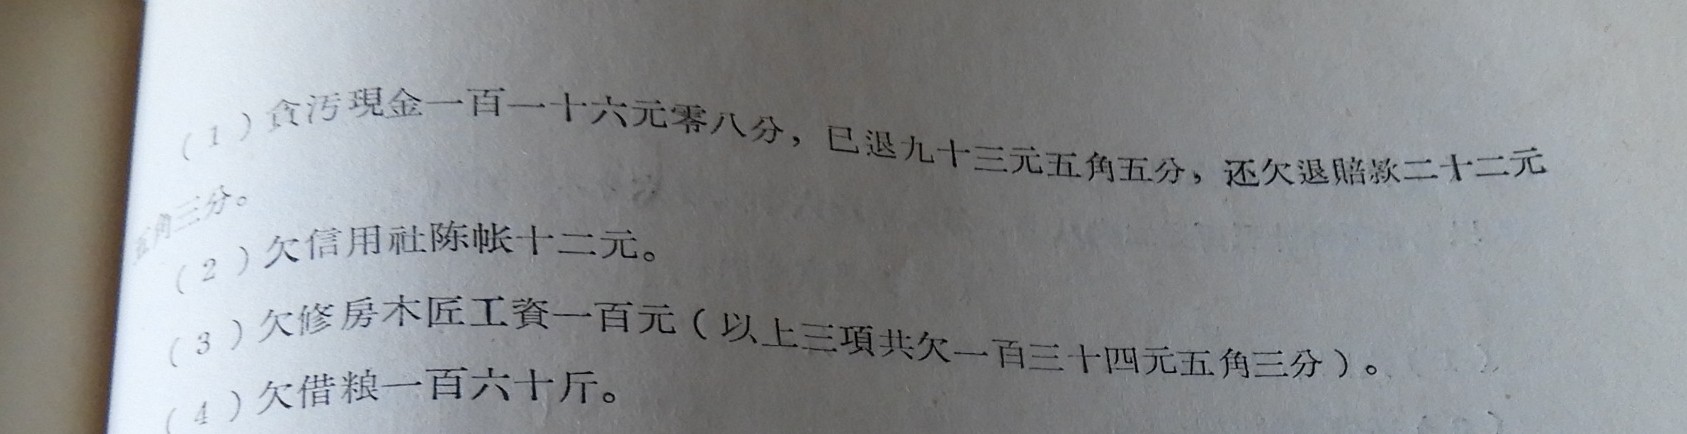 （1）貪汚現金一百一十六元零八分，已退九十三元五角五分，还欠退賠款二十二元
五角三分。
（2）欠信用社陈帐十二元。
（3）欠修房木匠工資一百元（以上三項共欠一百三十四元五角三分）。
（4）欠借粮一百六十斤。